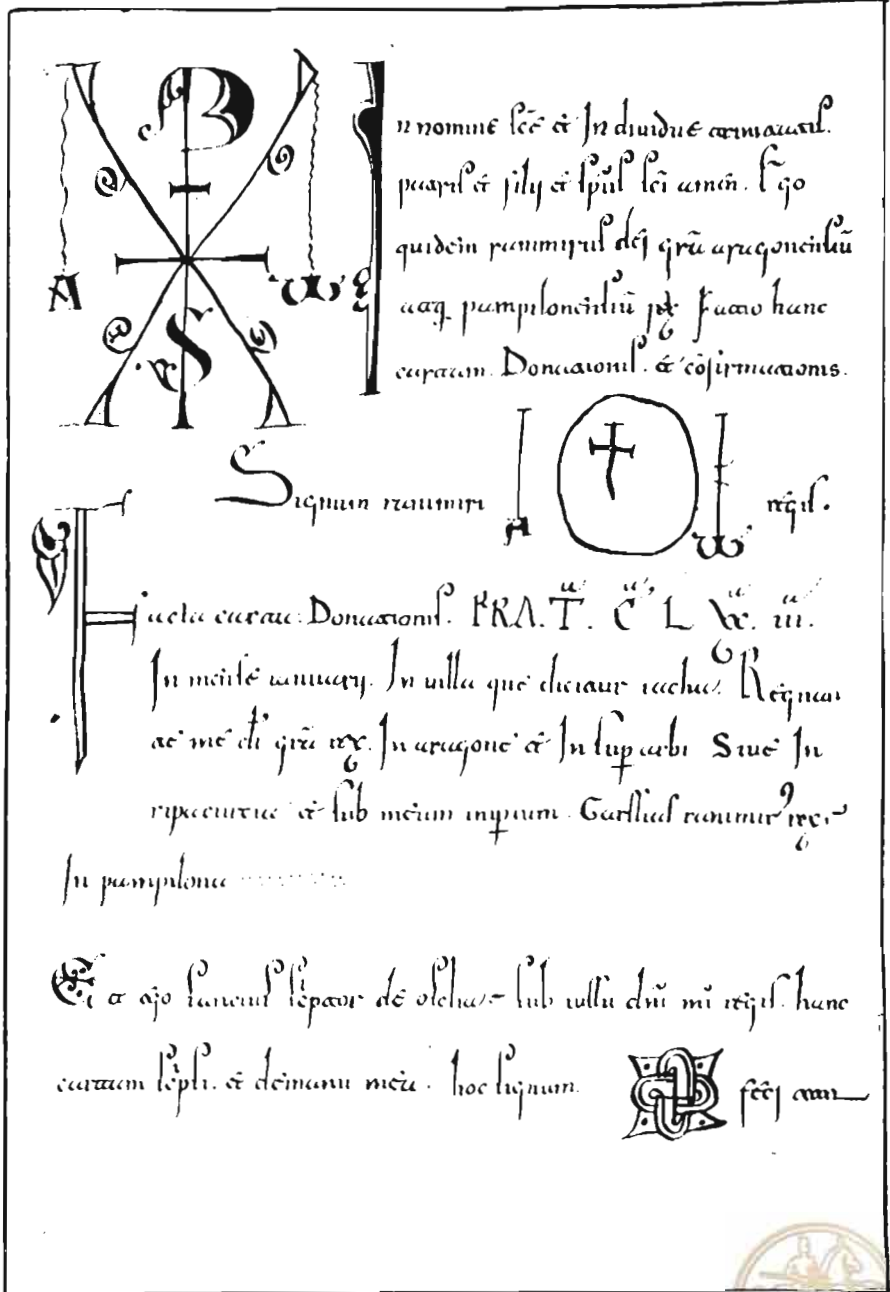 A ω
In nomine scē et Individue trinitatis.
patris et filij et spūs scī amen. Ego
quidem ranimirus dei grā aragonensiū
atq; pampilonensiū rex facio hanc
cartam. Donationis. et cōfirmationis.
Signum ranimiri A ω regis.
Facta carta Donationis. ERA. T. C. L xx. iii.
In mense ianuarij. In villa que dicitur iacha. Regnan
te me dī grā rex. In aragone et In suprarbi Sive In
ripacurtia et sub meum inperium. Garsias ranimir' rex
In pampilona
Et ego sancius scriptor de oscha sub iussu dnī mī regis. hanc
cartam scripsi. et de manu mea. hoc signum. feci